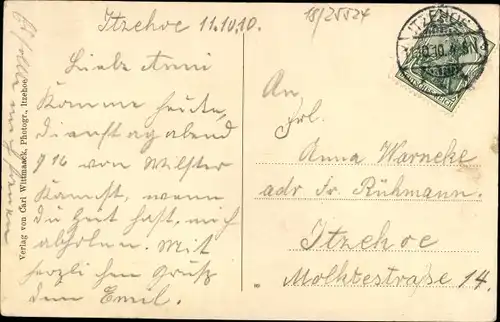 Itzehoe 11.10.10.
15/25524
Liebe Anni
Komme heute,
dienstag abend
9 16 von Wilster
Kannst, wenn
du Zeit hast, mich
abholen. Mit
herzlichen Gruß
dein Emil.
Verlag von Carl Wittmaack, Photogr., Itzehoe
ITZEHOE
An
Frl.
Anna Warneke
adr Fr. Rühmann.
Itzehoe
Molktestraße 14.